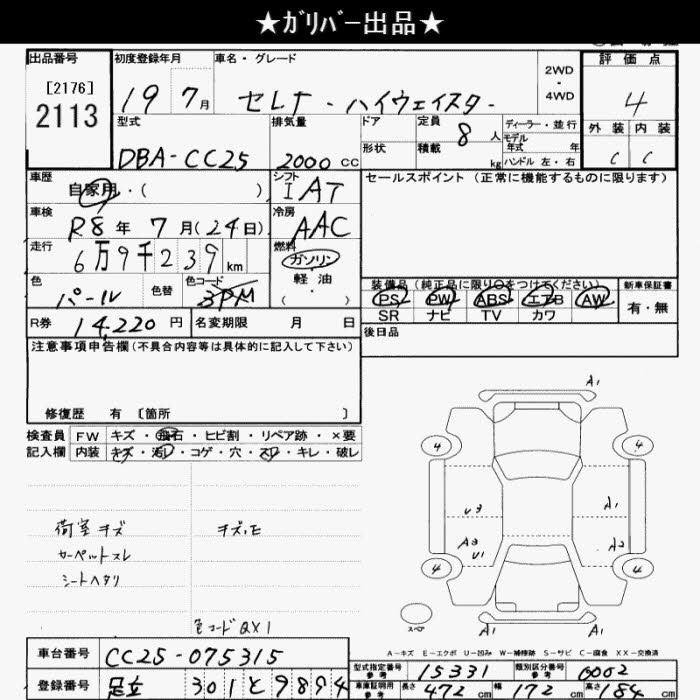 ★ｶﾞﾘﾊﾞｰ出品★
出品番号
[2176]
2113
初度登録年月
19 7月
車名・グレード
セレナ - ハイウェイスター
2WD
・
4WD
評価点
4
外装 内装
C C
型式
DBA-CC25
排気量
2000 CC
ドア
定員
8人
形状
積載
kg
ディーラー・並行
モデル
年式 年
ハンドル 左・右
車歴
自家用・( )
シフト
IAT
セールスポイント(正常に機能するものに限ります)
車検
R8年 7月(24日)
冷房
AAC
走行
6万9千239km
燃料
ガソリン
軽油
・
( )
色
パール
色替
色コード
3PM
装備品(純正品に限り○をつけてください)
PS PW ABS エアB AW
SR ナビ TV カワ
新車保証書
有・無
R券 14,220円
名変期限 月 日
後日品
注意事項申告欄(不具合内容等は具体的に記入して下さい)
修復歴 有 [箇所 ]
検査員
記入欄
FW キズ・飛石・ヒビ割・リペア跡・×要
内装 キズ・汚レ・コゲ・穴・スレ・キレ・破レ
荷室キズ
カーペットスレ
シートヘタリ
キズ,E
色コードQX1
A1
4 4
U3 A1
A3 A2
U1
4 4
スペア
A1 A1
A－キズ E－エクボ U－凹み W－補修跡 S－サビ C－腐食 XX－交換済
車台番号 CC25-075315
型式指定番号
参考
15331
類別区分番号
参考
0002
登録番号 足立 301と9894
車庫証明用
参考
長さ 472cm
幅 172cm
高さ 184cm